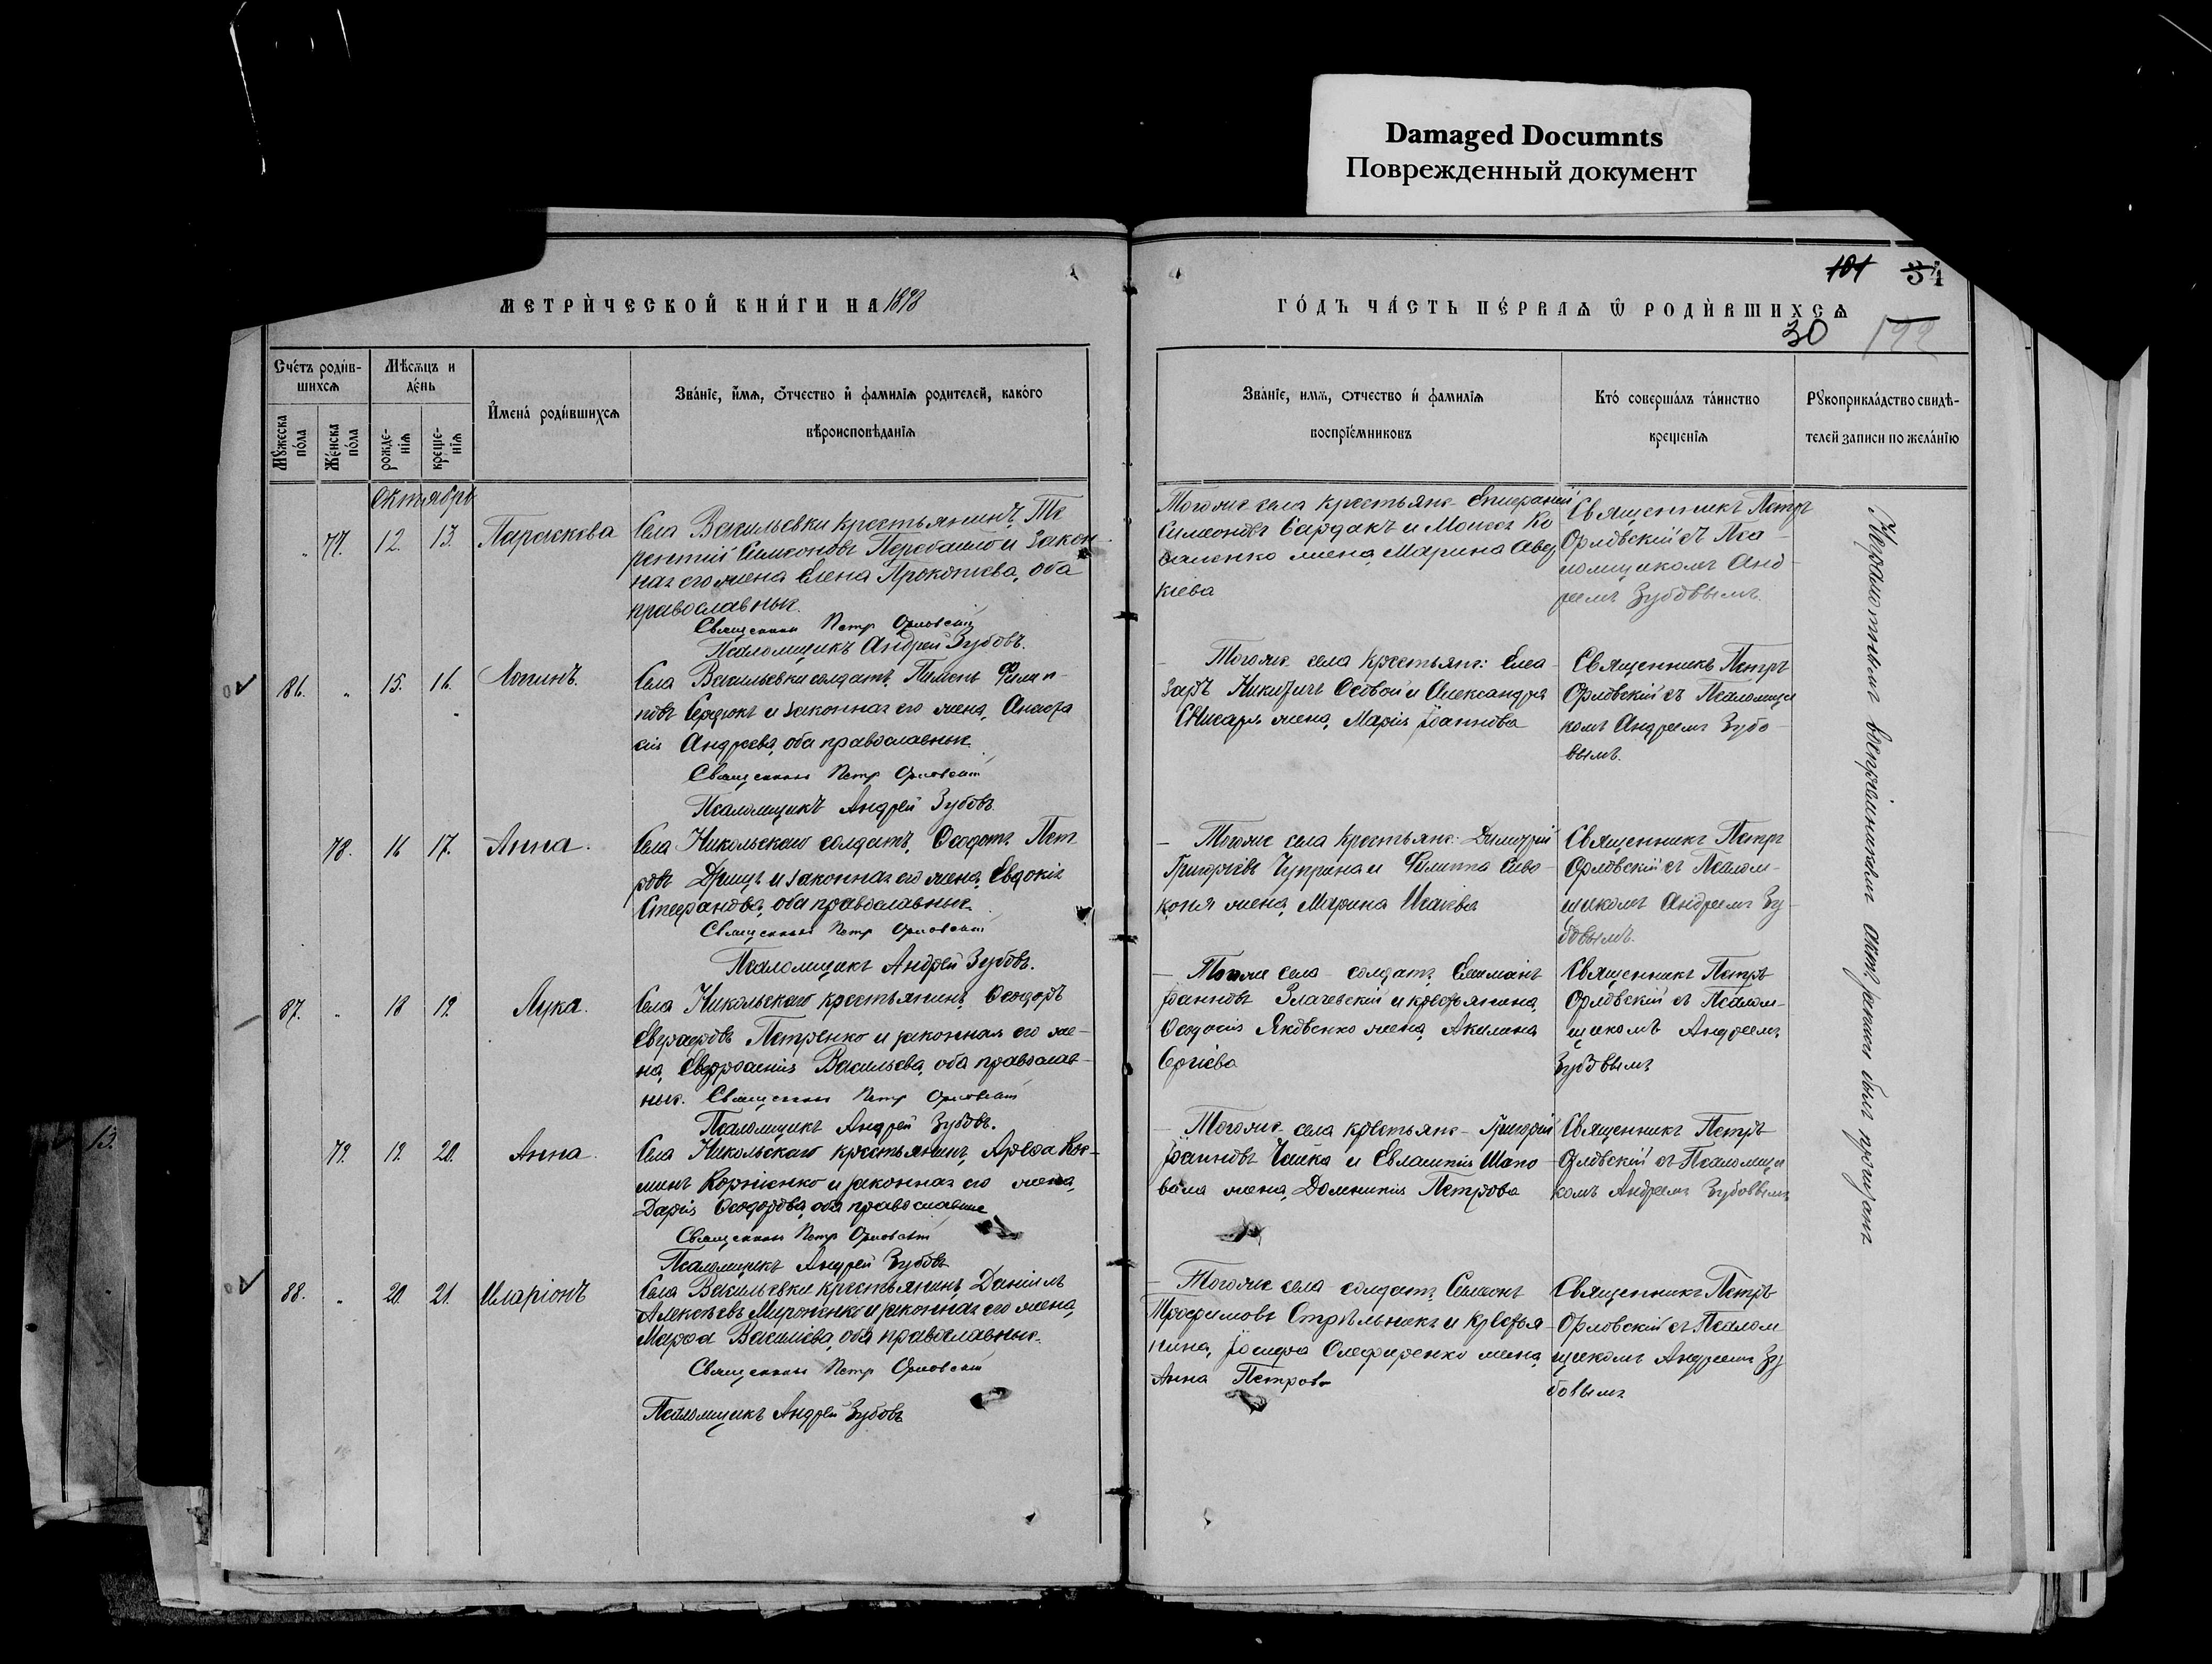 Damaged Documnts
Поврежденный документ
МЕТРИЧЕСКОЙ КНИГИ НА 1898
ГОДЪ ЧАСТЬ ПЕРВАЯ Ѿ РОДИВШИХСЯ
101 34
30 122
Счетъ родив-
шихся
Мѣсяцъ и
день
Мужеска
пола
Женска
пола
рожде-
нія
креще-
нія
Имена родившихся
Званіе, имя, отчество и фамилія родителей, какого
вѣроисповѣданія
Званіе, имя, отчество и фамилія
воспріемниковъ
Кто совершалъ таинство
крещенія
Рукоприкладство свидѣ-
телей записи по желанію
Октябрь
" 77. 12. 13. Параскева
Села Васильевки крестьянинъ, Те
рентій Симеоновъ и закон-
ная его жена Елена Прокопіева, оба
православные.
Священник Петр Орловский
Псаломщикъ Андрей Зубовъ.
Тогоже села крестьяне Стефаній
Симеоновъ Сардакъ и Моисея Ко
валенко жена, Марина Авд
кіева
Священникъ Петръ
Орловскій съ Пса-
ломщикомъ Анд-
реемъ Зубовымъ.
86. " 15. 16. Логинъ.
Села Васильевки солдатъ, Пименъ Филип-
повъ Сердюкъ и законная его жена, Анаста
сія Андреева, оба православные.
Священник Петр Орловский
Псаломщикъ Андрей Зубовъ
Тогоже села крестьяне: Елеа-
заръ Никитичъ Особой и Александра
жена, Марія Іоаннова
Священникъ Петръ
Орловскій съ Псаломщи
комъ Андреемъ Зубо-
вымъ.
78. 16 17. Анна.
Села Никольскаго солдатъ, Ѳеодотъ Пет
ровъ и законная его жена, Евдокія
Стефанова, оба православные.
Священник Петр Орловский
Псаломщикъ Андрей Зубовъ.
Тогоже села крестьяне: Димитрій
Григорьевъ Чуприна и Филиппа Сиво-
коня жена, Марина Исаіева
Священникъ Петръ
Орловскій съ Псалом-
щикомъ Андреемъ Зу-
бовымъ.
87. " 18 19. Лука.
Села Никольскаго крестьянинъ, Ѳеодоръ
Евграфовъ Петренко и законная его же-
на, Евфросинія Васильева, оба православ-
ные. Священник Петр Орловский
Псаломщикъ Андрей Зубовъ.
Тогоже села солдатъ,
Іоанновъ и крестьянина,
Ѳеодосія Яковенко жена, Акилина
Сергіева
Священникъ Петръ
Орловскій съ Псалом-
щикомъ Андреемъ
Зубовымъ
79. 19. 20. Анна.
Села Никольскаго крестьянинъ, Арефа Кос-
минъ Корніенко и законная его жена,
Дарія Ѳеодорова, оба православные
Священник Петр Орловский
Псаломщикъ Андрей Зубовъ
Тогоже села крестьяне Григорій
Іоанновъ Чайка и Евлампія Шапо
вала жена, Домникія Петрова
Священникъ Петръ
Орловскій съ Псаломщи
комъ Андреемъ Зубовымъ
88. " 20. 21. Иларіонъ
Села Васильевки крестьянинъ, Даніилъ
Алексѣевъ Мироненко и законная его жена,
Марфа Василіева, оба православные.
Священник Петр Орловский
Псаломщикъ Андрей Зубовъ
Тогоже села солдатъ, Симеонъ
Трофимовъ Стрѣльникъ и крестья-
нина, Іосифа Олефиренко жена,
Анна Петрова
Священникъ Петръ
Орловскій съ Псалом
щикомъ Андреемъ Зу
бовымъ
Неграмотнымъ воспріемникамъ актъ записи былъ прочитанъ
13.